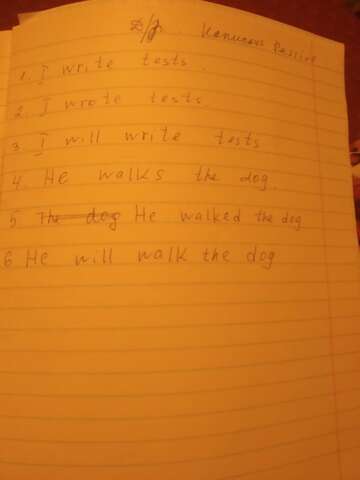 Д/з. Passive
1. I write tests.
2. I wrote tests
3 I will write tests
4. He walks the dog.
5 The dog He walked the dog
6 He will walk the dog